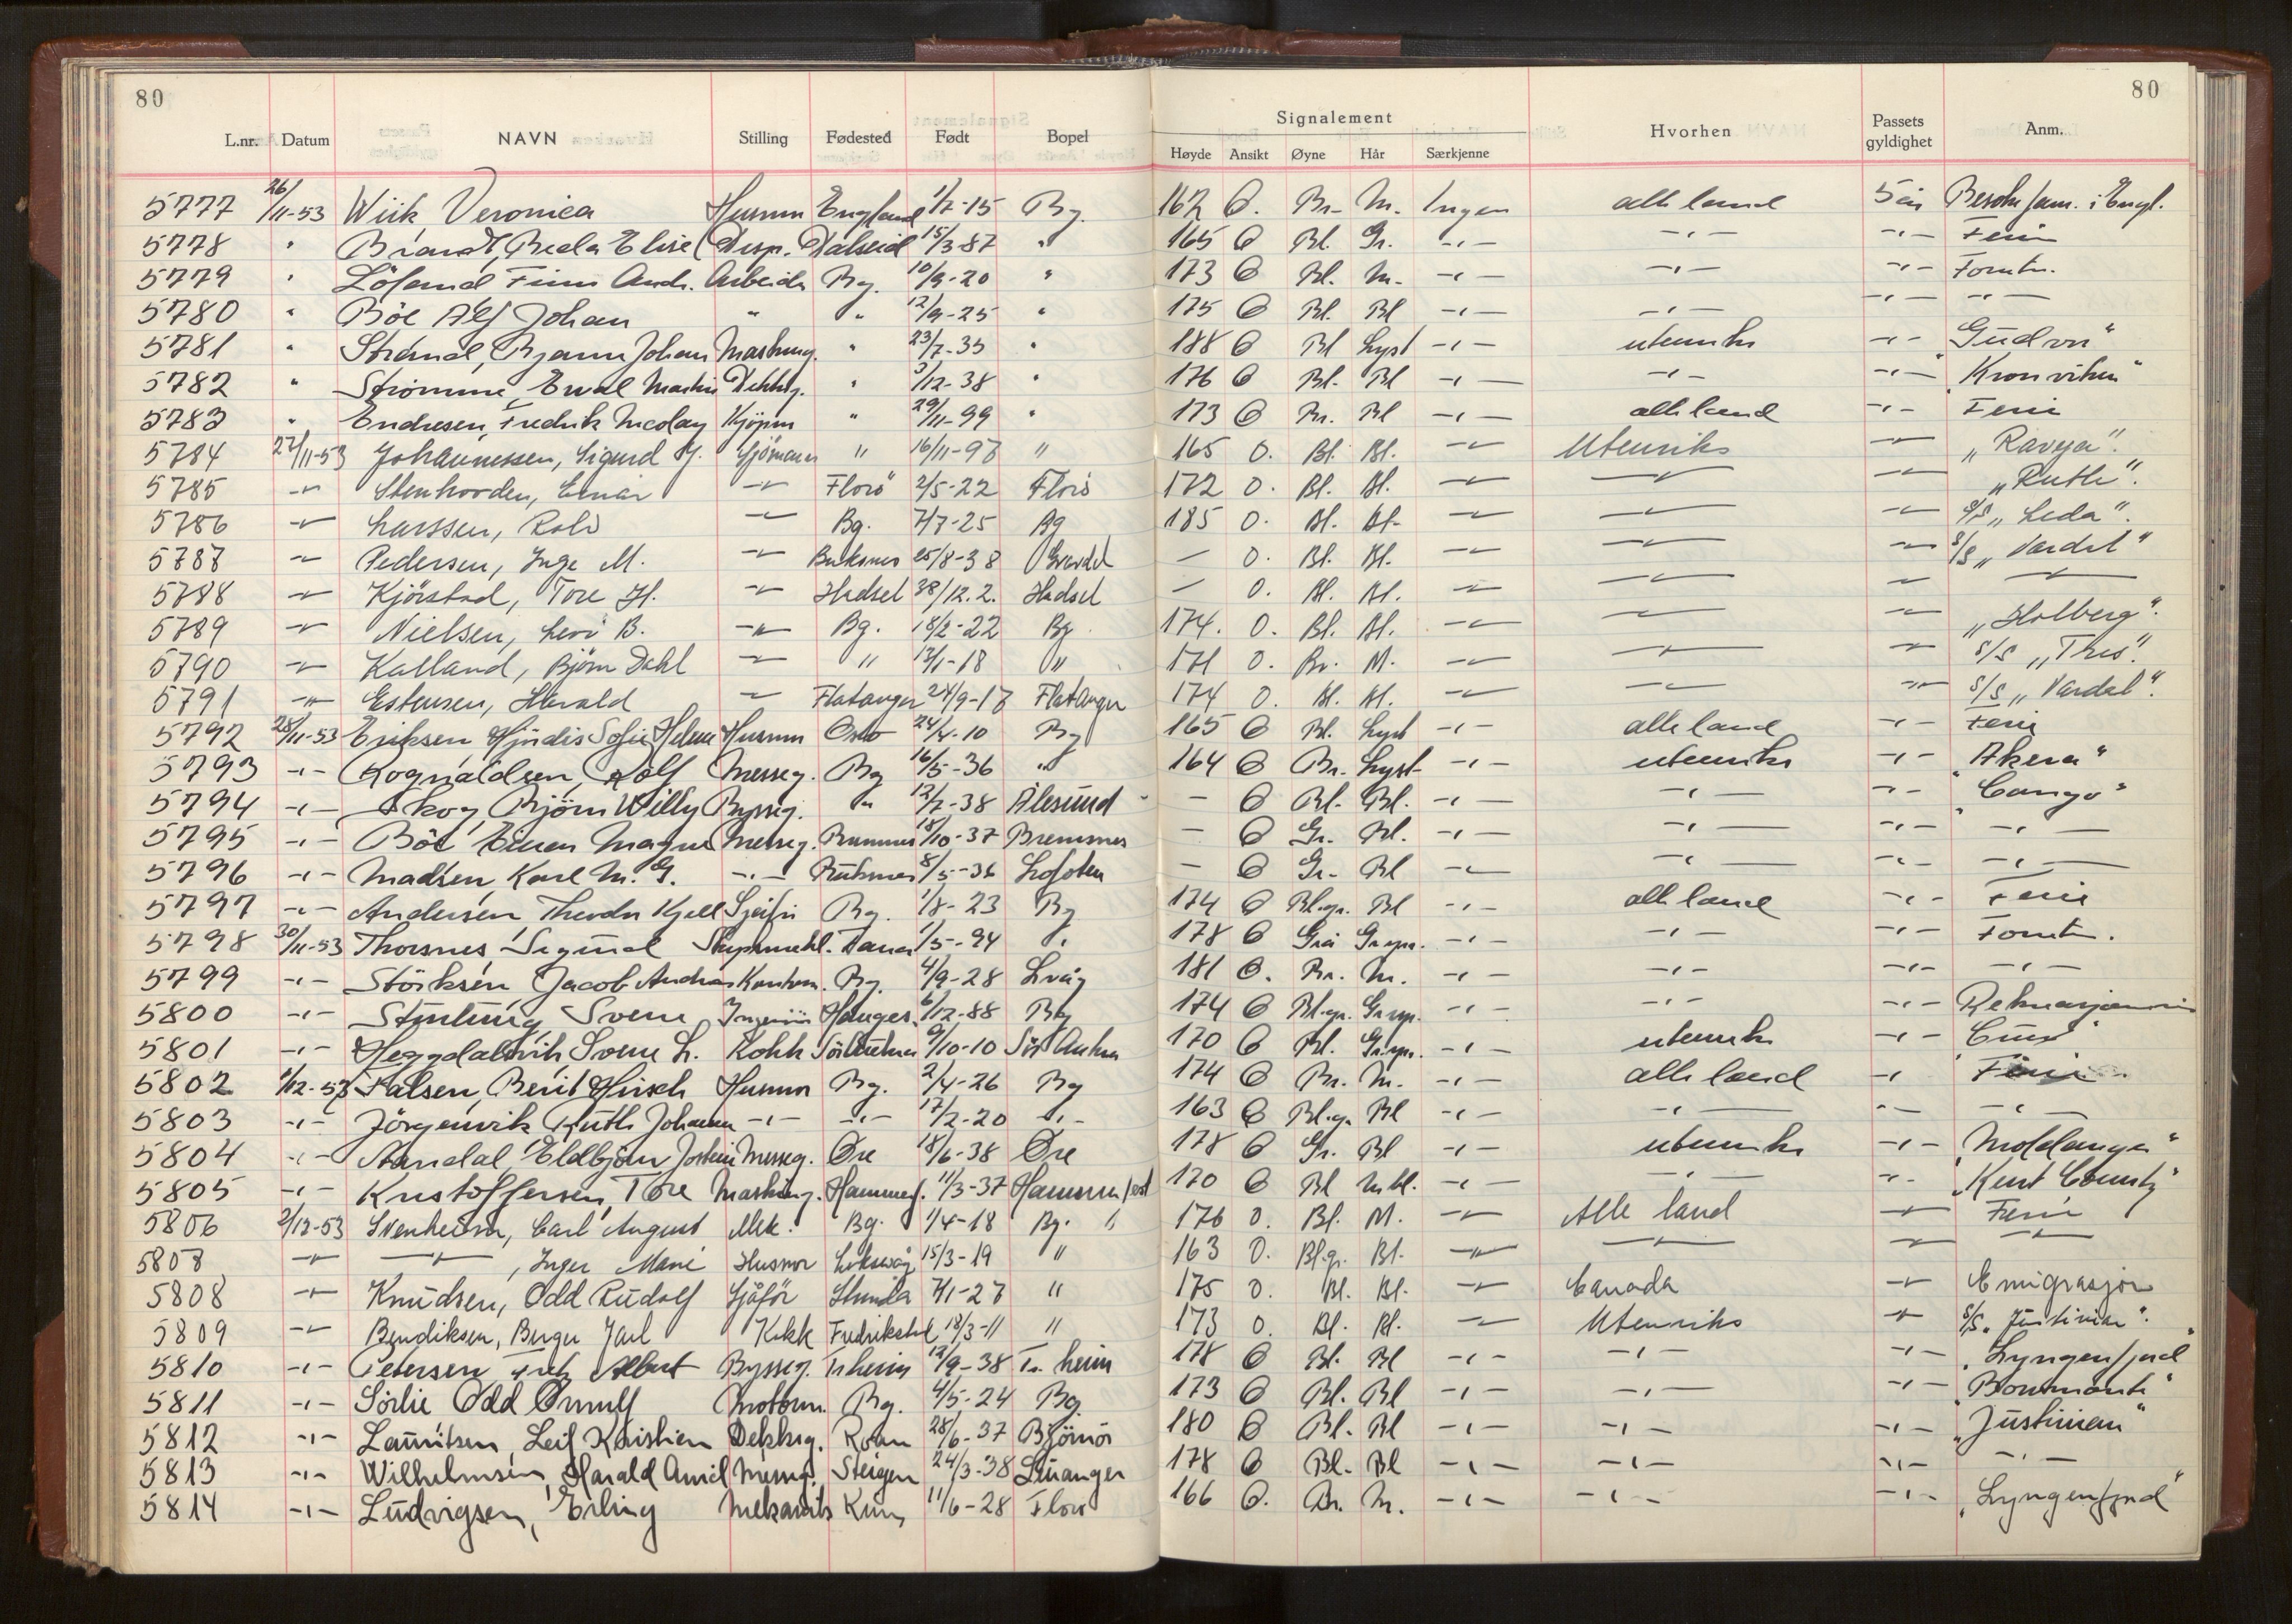 80 80
L.nr. Datum NAVN Stilling Fødested Født Bopel Signalement Hvorhen Passets gyldighet Anm.
Høyde Ansikt Øyne Hår Særkjenne
5777 26/11-53 Wiik Veronica Husmr England 1/7-15 Bg. 162 O. Br. M. Ingen alle land 5 år Besøke fam. i Engl.
5778 " Brandt, Beda Elise Disp. Dalseid 15/3-87 " 165 O Bl. Gr. -"- -"- -"- Ferie
5779 " Löland Finn Andr. Arbeider Bg. 10/9-20 " 173 O Bl. M. -"- -"- -"- Forretn.
5780 " Böe Alf Johan " " 12/9-25 " 175 O Bl. Bl -"- -"- -"- -"-
5781 " Strand, Bjarne Johan Masking. " 23/7-35 " 188 O Bl Lyst -"- utenriks -"- Gudvor"
5782 " Strömme, Eival Martin Dekksg. " 3/12-38 " 176 O Bl. Bl -"- -"- -"- "Kronviken"
5783 " Endresen, Fredrik Nicolay Kjöpm " 29/11-99 " 173 O Br. Bl -"- alle land -"- Ferie
5784 27/11-53 Johannessen, Sigurd J. Sjömann " 16/11-97 " 165 O. Bl. Bl. -"- Utenriks -"- "Raveja".
5785 -"- Stenhovden, Einar -"- Florö 2/5-22 Florö 172 O. Bl. Bl. -"- -"- -"- "Ruth".
5786 -"- Larssen, Rolv -"- Bg. 7/7-25 Bg 185 O. Bl. Bl. -"- -"- -"- S/S "Leda".
5787 -"- Pedersen, Inge M. -"- Buksnes 25/8-38 Gravdal - O. Bl. Bl. -"- -"- -"- S/S "Vardal"
5788 -"- Kjörstad, Tore H. -"- Hadsel 28/12.2. Hadsel - O. Bl. Bl. -"- -"- -"- -"-
5789 -"- Nielsen, Levi B. -"- Bg. 18/2-22 Bg 174. O. Bl. Bl. -"- -"- -"- "Holberg".
5790 -"- Kalland, Björn Dahl -"- " 13/1-18 " 171 O. Br. M. -"- -"- -"- S/S "Tres".
5791 -"- Estensen, Harald -"- Flatanger 24/9-17 Flatanger 174 O. Bl. Bl. -"- -"- -"- S/S "Vardal".
5792 28/11-53 Eriksen Hjördis Sofie Helene Husmr Oslo 24/4-10 Bg 165 O Bl. Lyst -"- alle land -"- Ferie
5793 -"- Rognaldsen, Rolf Messeg. Bg 16/5-36 " 164 O Br. Lyst -"- utenriks -"- "Akera"
5794 -"- Skog, Björn Willy Bysseg. " 12/7-38 Ålesund - O Bl. Bl. -"- -"- -"- "Congo"
5795 -"- Böe Einar Magne Messeg. Bremnes 18/10-37 Bremnes - O Gr. Bl. -"- -"- -"- -"-
5796 -"- Madsen, Karl M. G. -"- Buksnes 8/5-36 Lofoten - O Gr. Bl -"- -"- -"- -"-
5797 -"- Andersen Theodor Kjell Sjåför Bg. 1/8-23 Bg 174 O Bl.gr. Bl -"- alle land -"- Ferie
5798 30/11-53 Thorsnes, Sigurd Skipsmekl. 1/5-94 " 178 O Grå Grspr. -"- -"- -"- Forretn.
5799 -"- Störksen Jacob Andreas Kontorm. Bg. 4/9-28 Lvåg 181 O. Br. M. -"- -"- -"- -"-
5800 -"- Svein Ingeniör Hauges. 6/12-88 Bg 174 O Bl.gr. Grspr. -"- -"- -"-
5801 -"- Heggdalsvik Sverre L. Kokk Sör Aukra 9/10-10 Sör Aukra 170 O Bl. Grspr. -"- utenriks -"-
5802 1/12-53 Falsen, Berit Hirsch Husmor Bg. 2/4-26 Bg 174 O Br. M. -"- alle land -"- Ferie
5803 -"- Jörgenvik Ruth Johanne -"- -"- 17/2-20 -"- 163 O Bl.gr. Bl -"- -"- -"- -"-
5804 -"- Aandal, Eldbjörn Jostein Messeg. Øre 18/6-38 Øre 178 O Gr. Bl -"- utenriks -"- "Moldanger"
5805 -"- Kristoffersen, Tore Masking. Hammerf. 11/3-37 Hammerfest 170 O Bl M.bl. -"- -"- -"- "Kent County"
5806 2/12-53 Svenheim, Carl August Mek. Bg. 1/4-18 Bg. " 176 O. Bl. M. -"- Alle land -"- Ferie
5807 -"- -"-, Inger Marie Husmor Laksevåg 15/3-19 " 163 O. Bl.g. Bl. -"- -"- -"- -"-
5808 -"- Knudsen, Odd Rudolf Sjåför Strinda 7/1-27 " 175 O. Bl. Bl. -"- Canada -"- Emigrasjon
5809 -"- Bendiksen, Berger Jarl Kokk Fredrikstad 18/3-11 " 173 O. Bl. Bl. -"- Utenriks -"- S/S "Justinian".
5810 -"- Petersen, Fritz Albert Bysseg. Tr.heim 12/9-38 Tr. heim 178 O Bl. Bl -"- -"- -"- "Lyngenfjord"
5811 -"- Sörlie Odd Ørnulf Motorm. Bg. 4/5-24 Bg. 173 O Bl. Bl -"- -"- -"- "Bowmonte"
5812 -"- Lauritsen, Leif Kristian Dekksg. Roan 28/6-37 Björnör 180 O Bl. Bl -"- -"- -"- "Justinian"
5813 -"- Wilhelmsen, Harald Arvid Messeg. Steigen 24/3-38 Leiranger 178 O Bl. Bl -"- -"- -"- -"-
5814 -"- Ludvigsen, Erling Mekaniker Kinn 11/6-28 Florö 166 O. Br. M. -"- -"- -"- "Lyngenfjord"